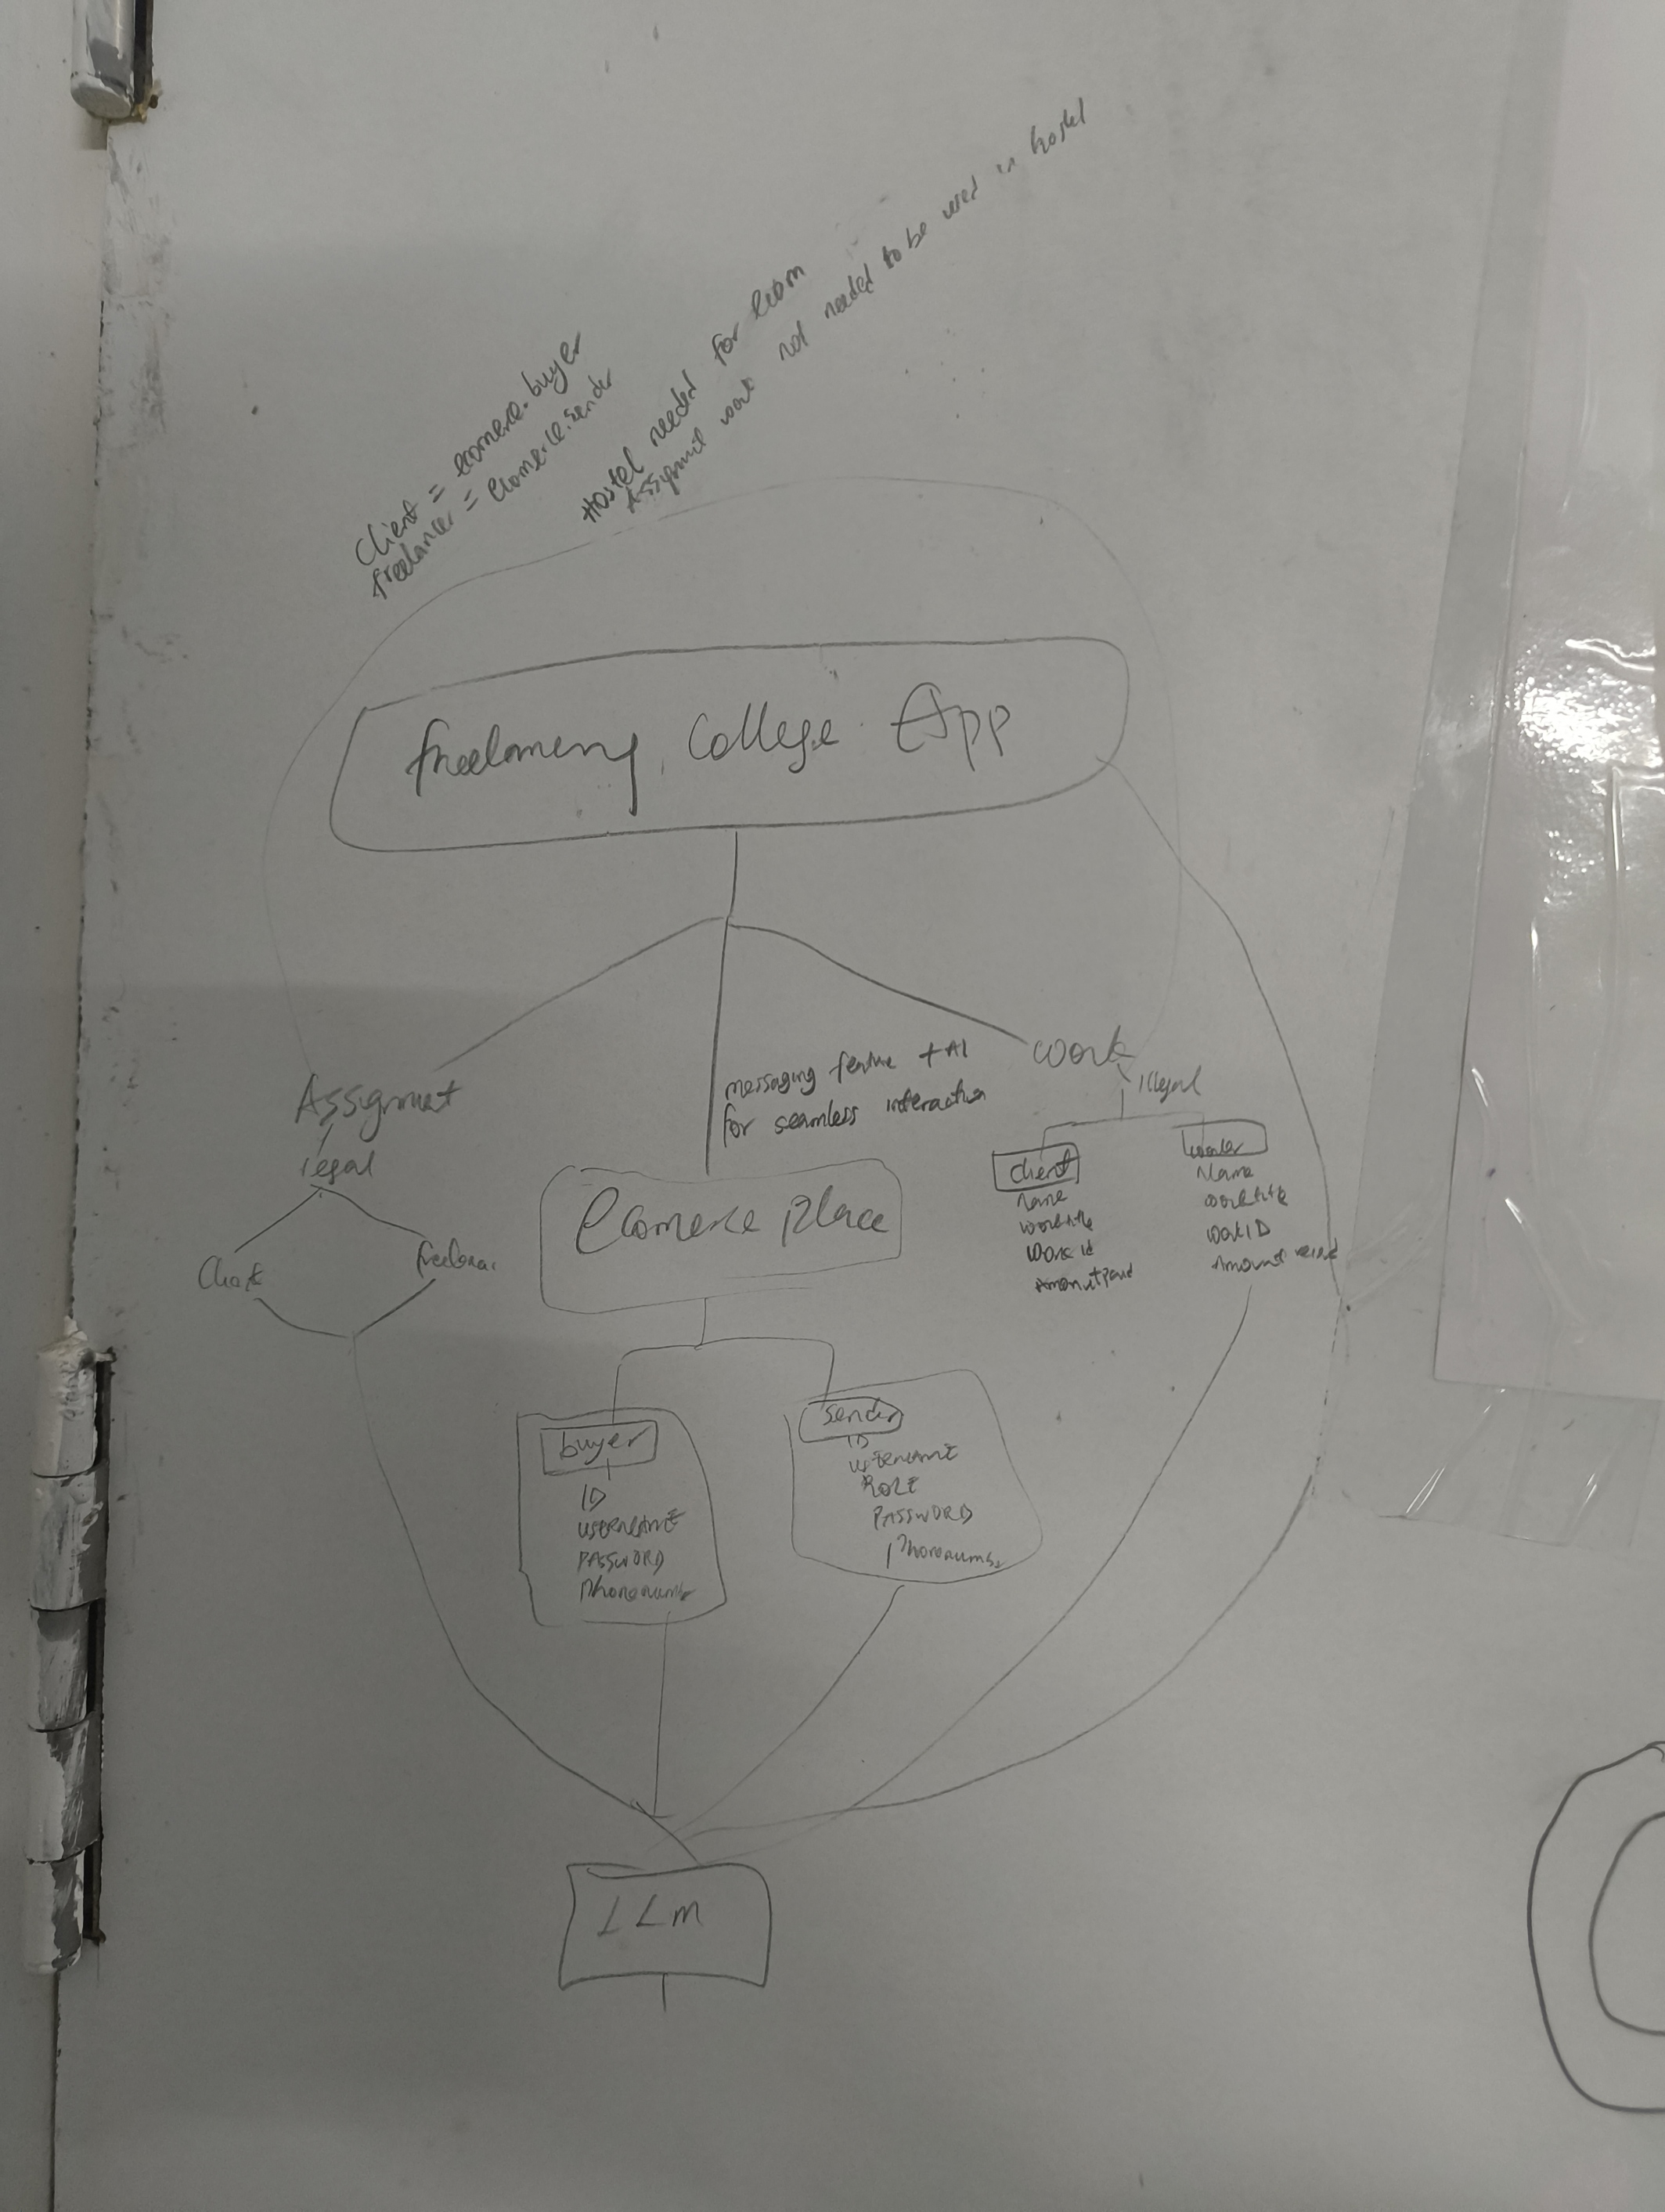 Client = ecomerce.buyer
freelancer = Ecomerce.sender
Hostel needed for Ecom
Assignment work not needed to be used in hostel
freelancing College App
Assignment
legal
freelancer
messaging feature + AI
for seamless interaction
work
illegal
Client
name
worktitle
work id
Amount paid
worker
Name
worktitle
workID
Amount
Ecomerce place
buyer
ID
USERNAME
PASSWORD
Phonenumber
sender
ID
USERNAME
ROLE
PASSWORD
Phonenumber
LLM